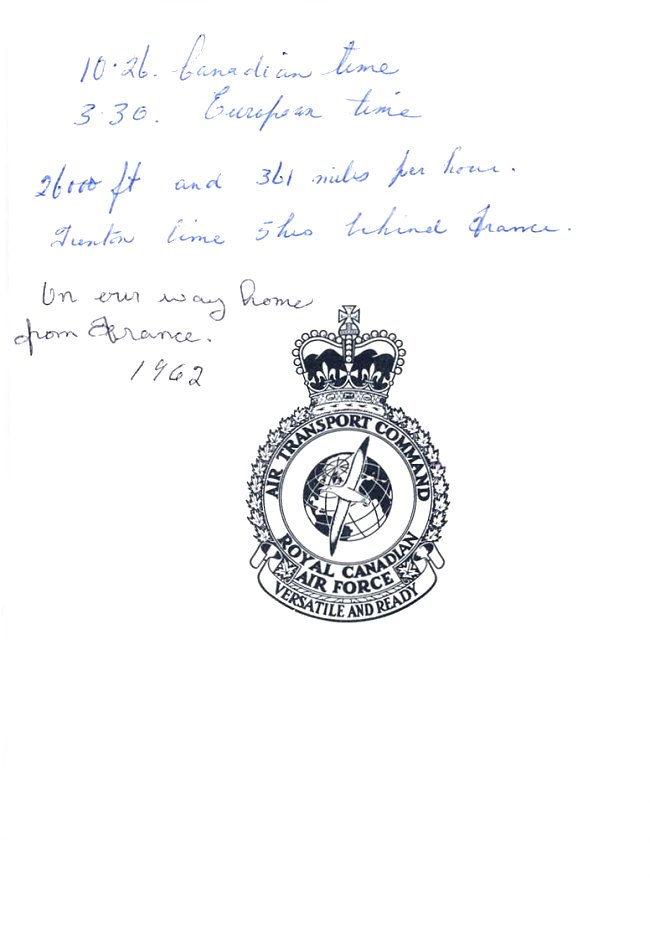 10.26. Canadian time
3.30. European time
26000 ft and 361 miles per hour.
Trenton time 5hrs behind France.
On our way home
from France.
1962
AIR TRANSPORT COMMAND
ROYAL CANADIAN
AIR FORCE
VERSATILE AND READY